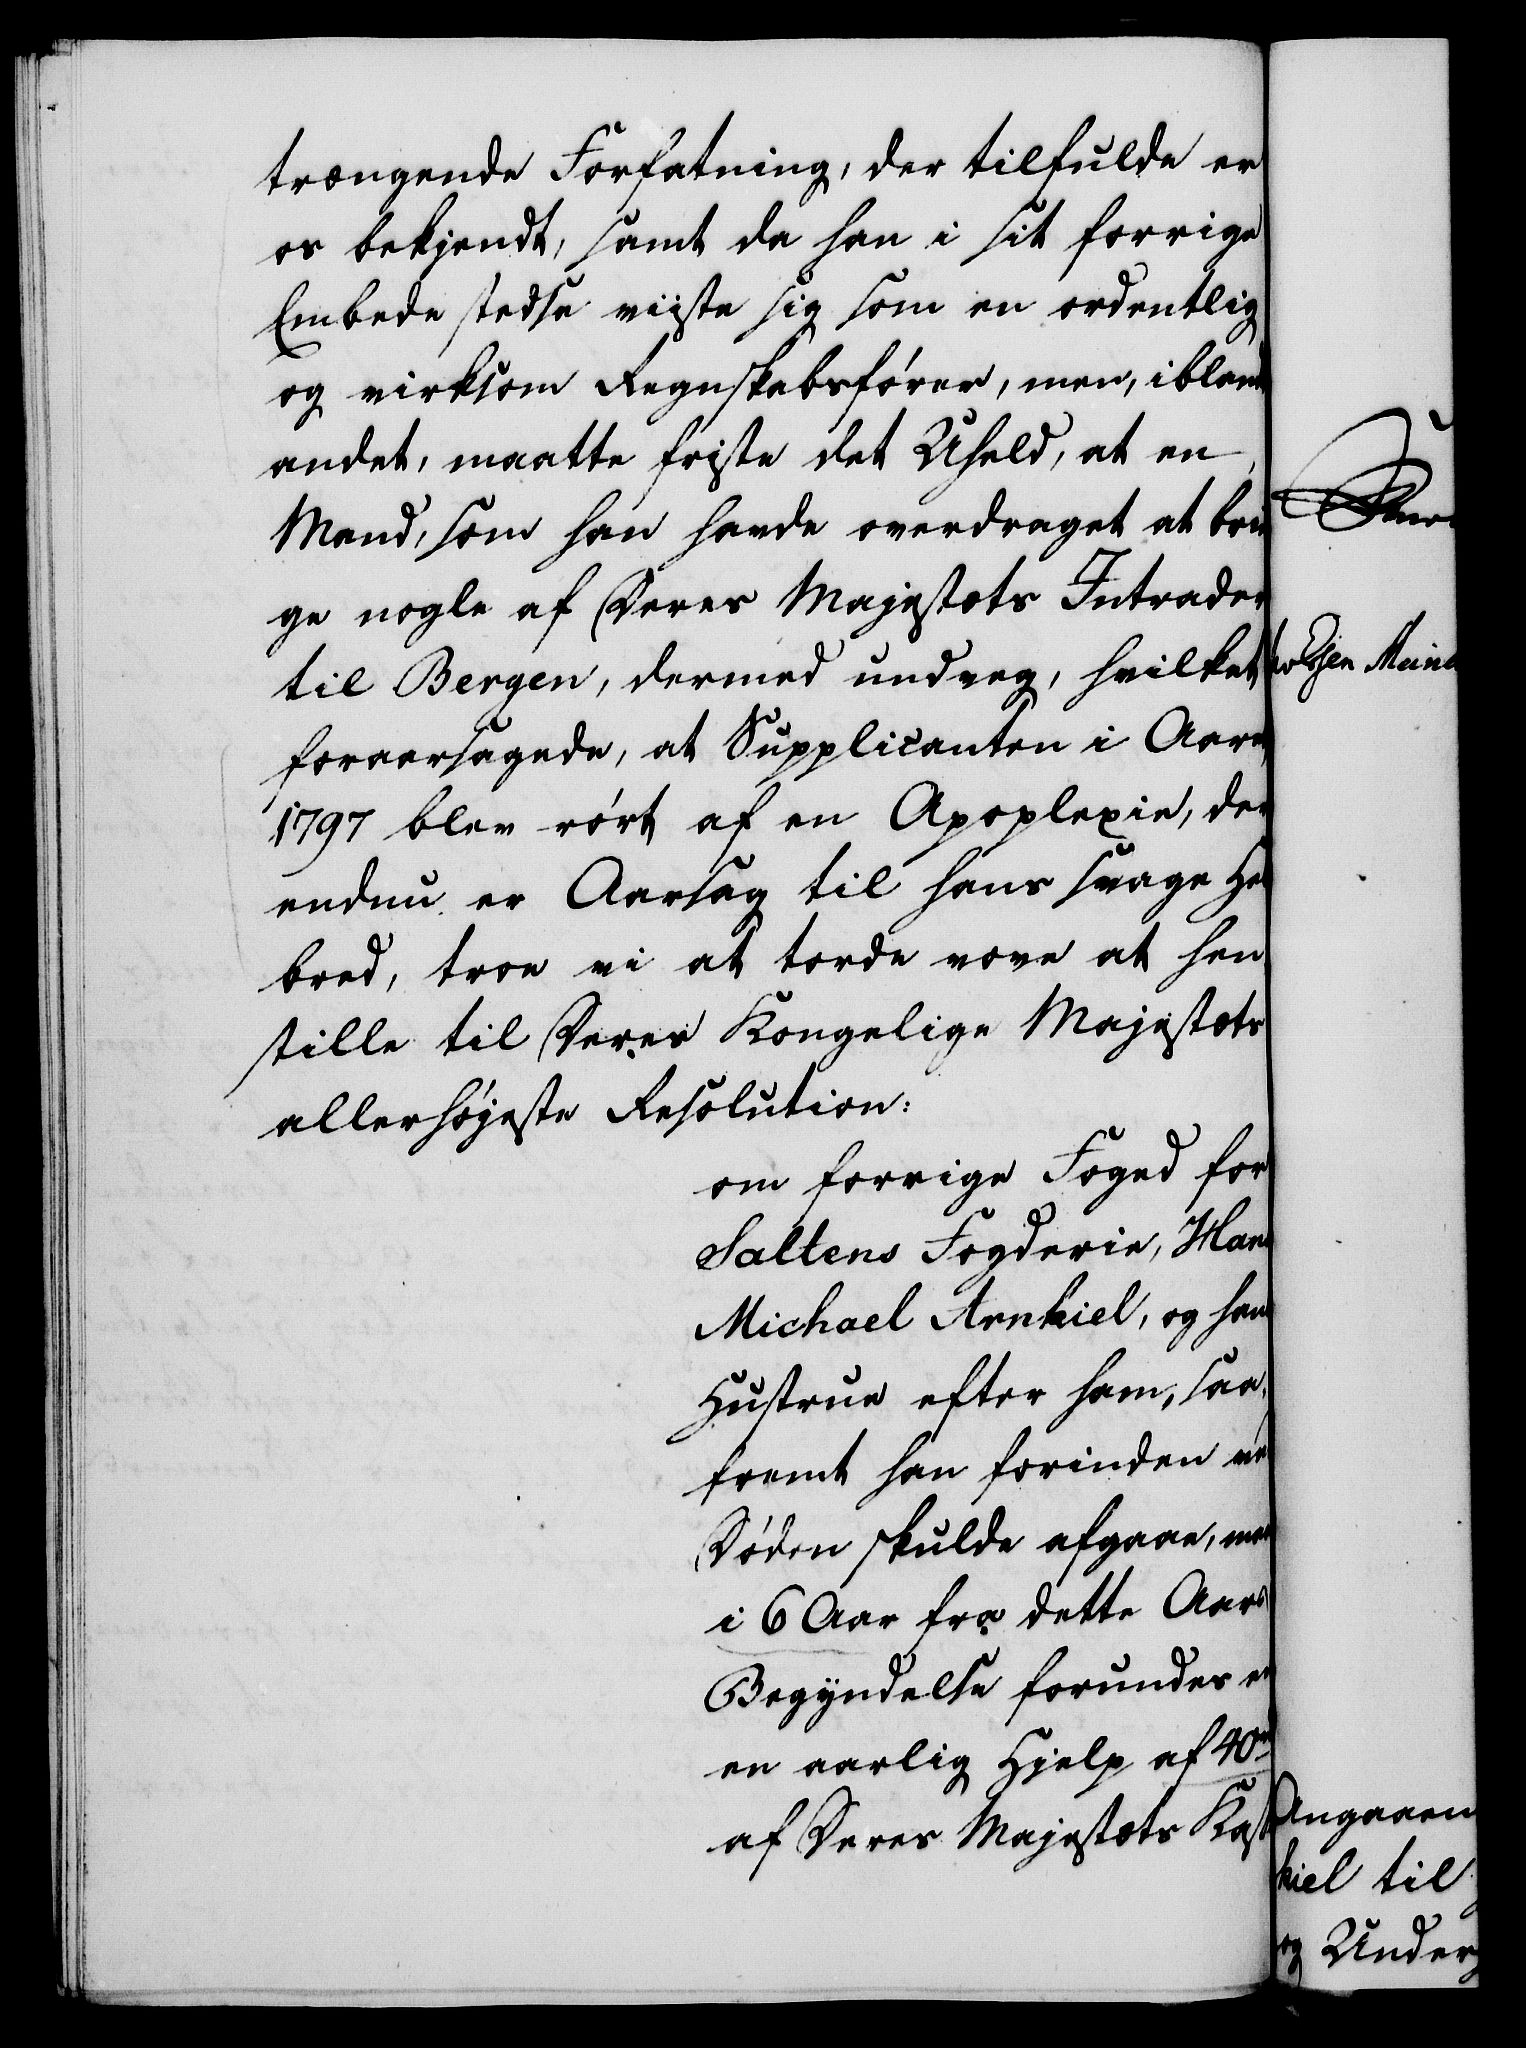 trængende Forfatning, der tilfulde er
os bekjendt, samt da han i sit forrige
Embede stedse viiste sig som en ordentlig
og virksom Regnskabsfører, men, iblandt
andet, maatte friste det Uheld, at en
Mand, som han havde overdraget at brin
ge nogle af Deres Majestæts Intrader
til Bergen, dermed undveg, hvilket
foraarsagede, at Supplicanten i Aaret
1797 blev rørt af en Apoplexie, der
endnu er Aarsag til hans svage Hel
bred, troe vi at torde vove at hen
stille til Deres Kongelige Majestæts
allerhøjeste Resolution:
om forrige Foged for
Saltens Fogderie, Hans
Michael Arnkiel, og hans
Hustrue efter ham, saa,
fremt han forinden ved
Døden skulde afgaae, maa
i 6 Aar fra dette Aars
Begyndelse forundes
en aarlig Hjelp af 40 rd
af Deres Majestæts Kasse
Angaaen
kiel til
og Under